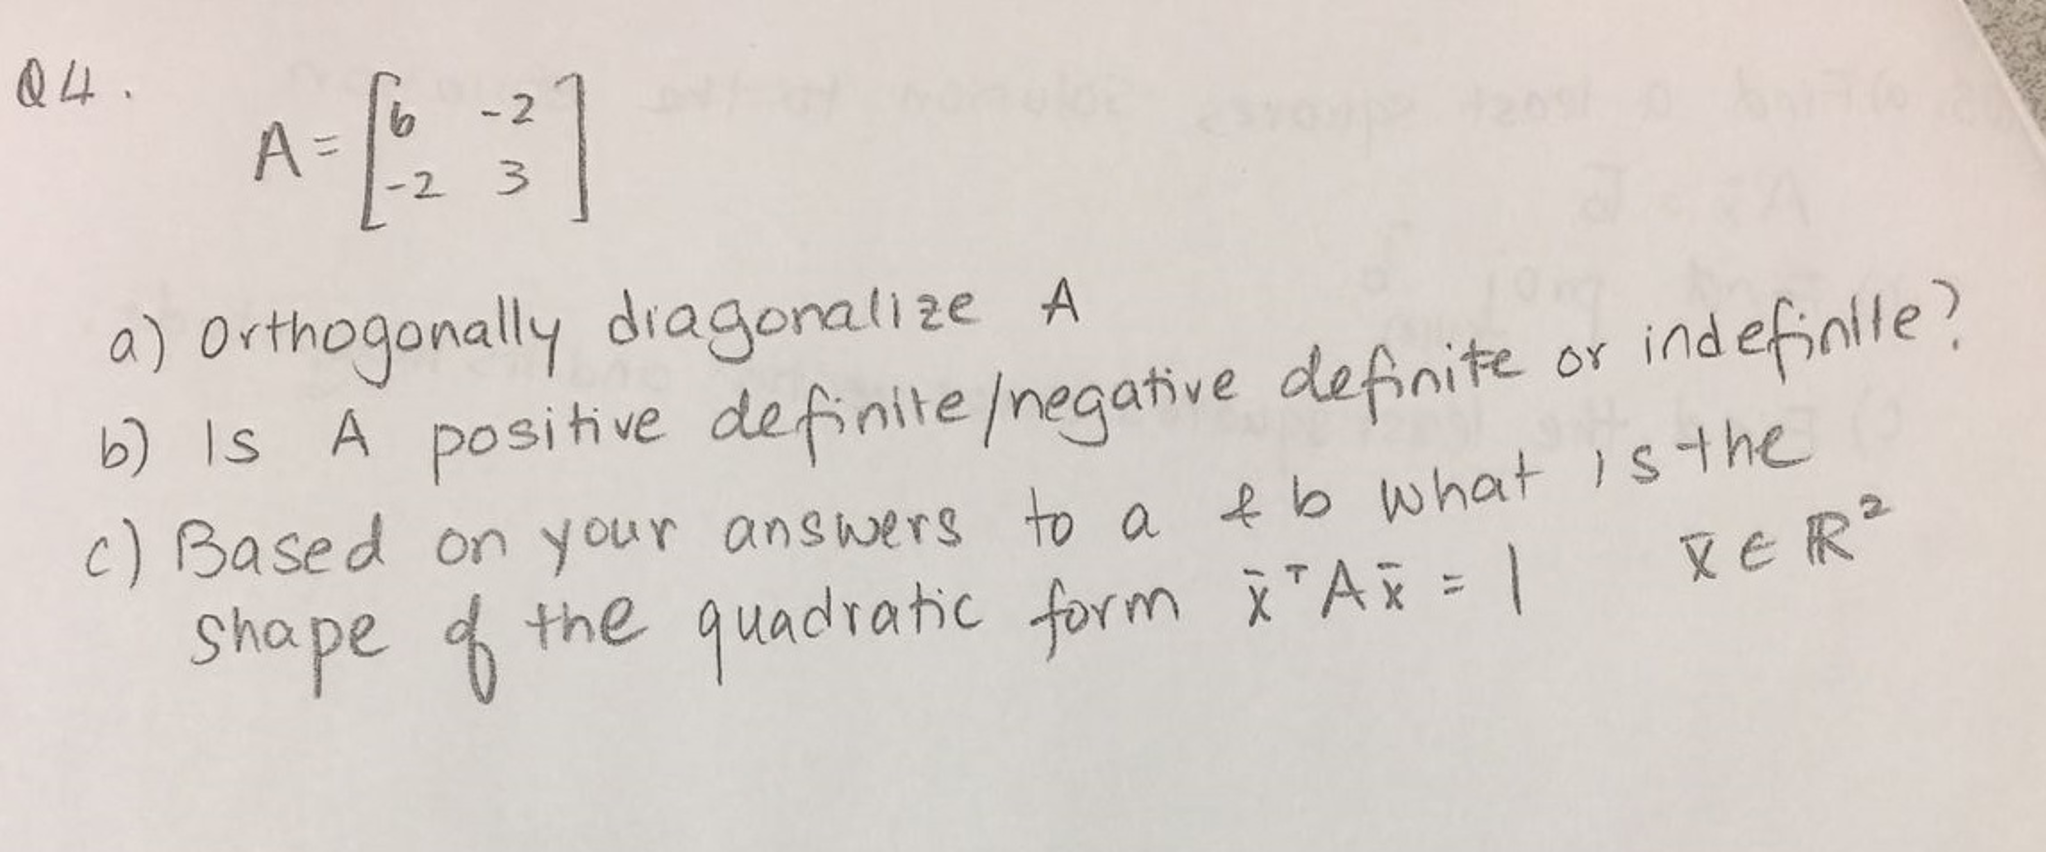 Q4.
A = [6 -2
-2 3]
a) Orthogonally diagonalize A
b) Is A positive definite/negative definite or indefinite?
c) Based on your answers to a & b what is the
shape of the quadratic form x̄ᵀAx̄ = 1 x̄ ∈ ℝ²